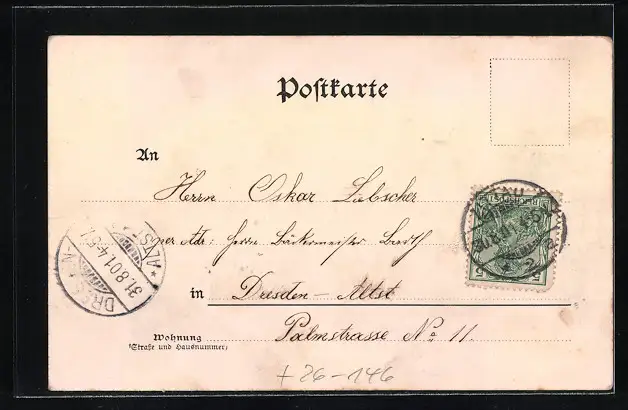 Postkarte
An
Herrn Oskar Liebscher
per Adr: Herrn Bäckermeister Barth
in Dresden – Altst
Palmstrasse No 11.
Wohnung
(Straße und Hausnummer)
DRESDEN ALTST.
31.8.01.4-5
+26-146